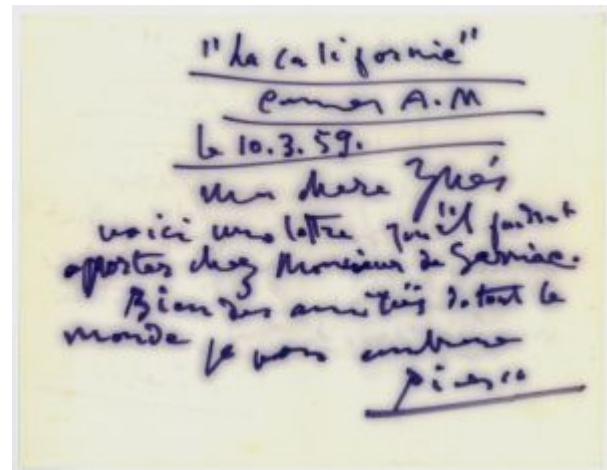 "La Californie"
Cannes A.M
le 10.3.59.
Ma chere Inès
voici une lettre qu'il faudrait
aporter chez Monsieur de
Bien des amitiés de tout le
monde je vous embrasse
Picasso